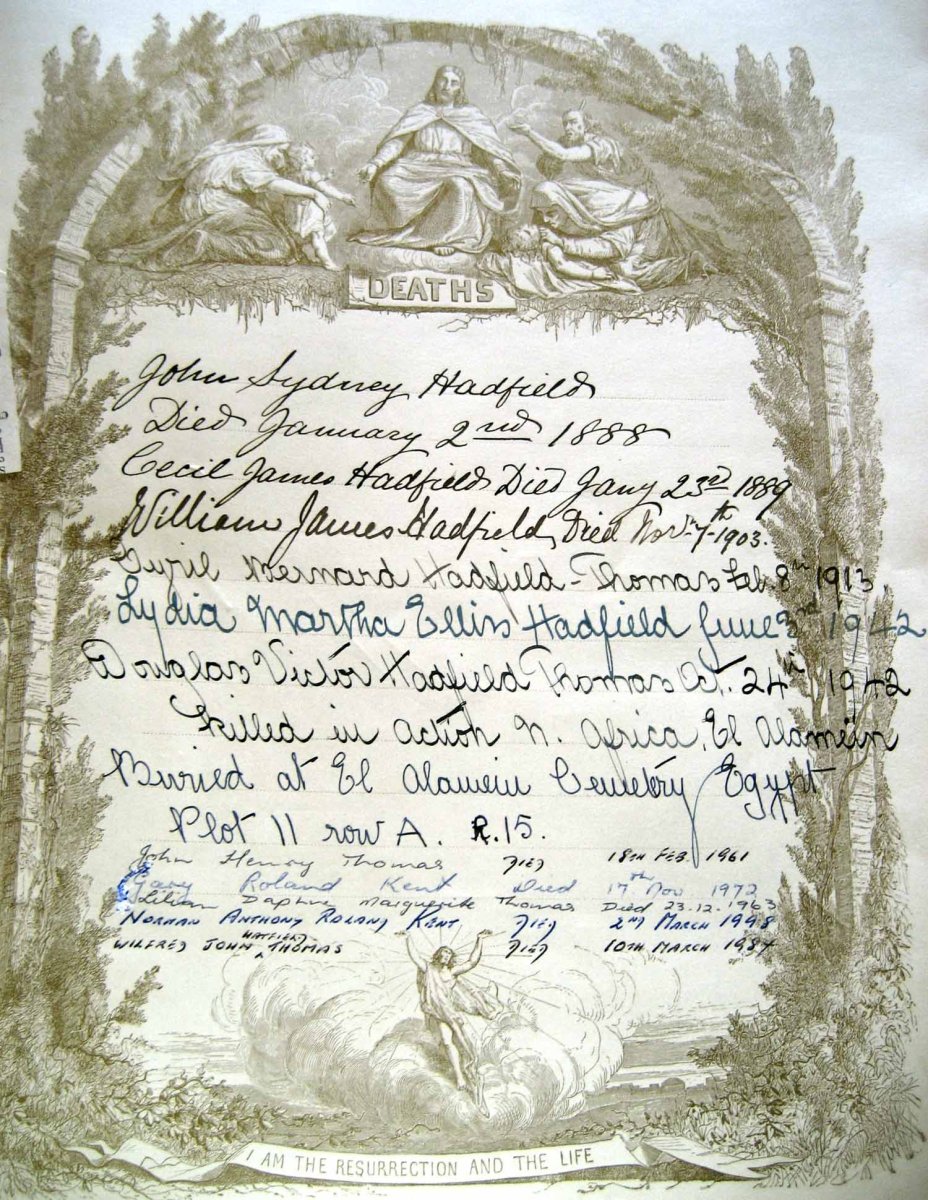 DEATHS
John Sydney Hadfield
Died January 2nd 1888
Cecil James Hadfield Died Jany 23rd 1889
William James Hadfield, Died Novr 7th 1903.
Cyril Bernard Hadfield-Thomas Feb 8th 1913
Lydia Martha Ellis Hadfield June 3rd 1942
Douglas Victor Hadfield Thomas Oct. 24th 1942
Killed in action N. Africa, El Alamein
Buried at El Alamein Cemetry Egypt
Plot 11 row A. R.15.
John Henry Thomas DIED 18TH FEB. 1961
Gary Roland Kent Died 17th Nov. 1972
Lilian Daphne Marguerite Thomas Died 23.12.1963
NORMAN ANTHONY ROLAND KENT DIED 2ND MARCH 1998
HATFIELD
WILFRED JOHN THOMAS DIED 10TH MARCH 1987
I AM THE RESURRECTION AND THE LIFE